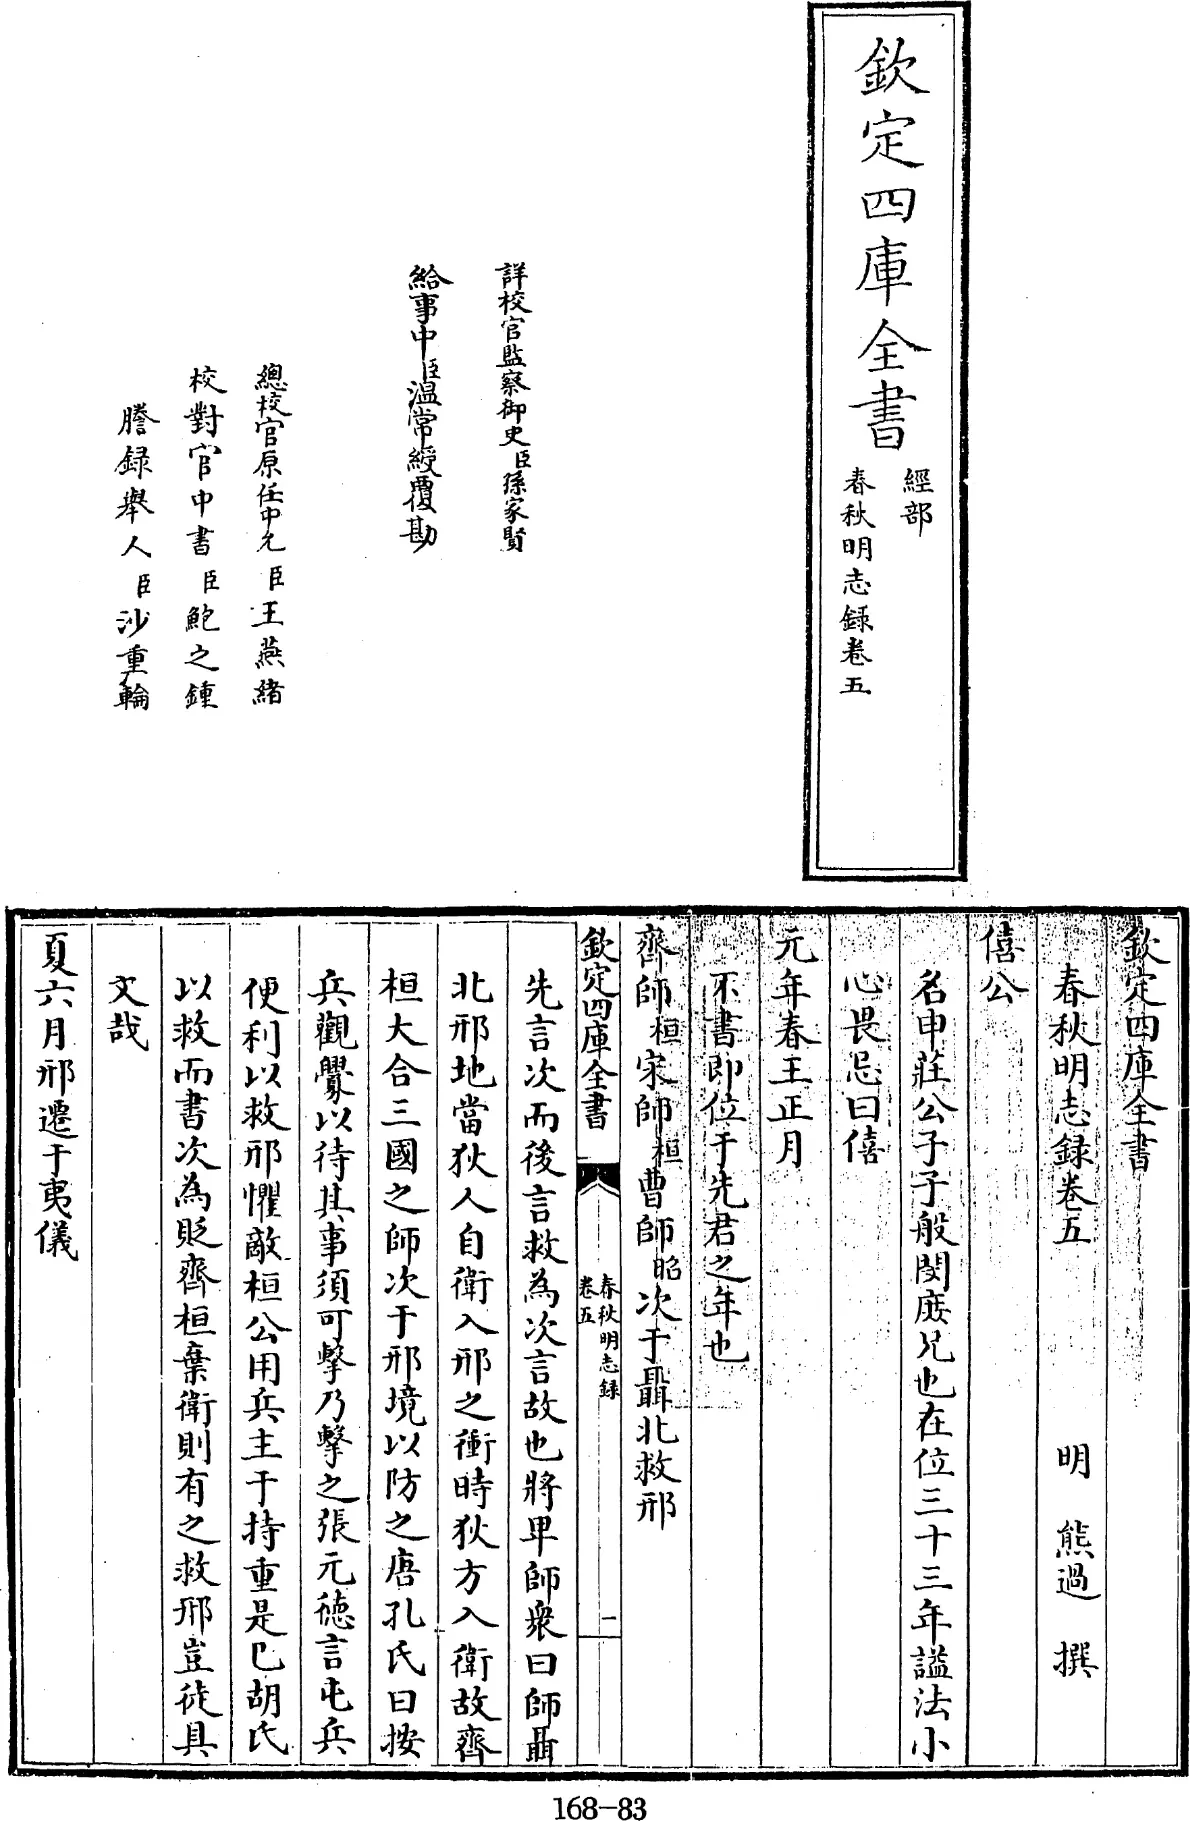 欽定四庫全書
經部
春秋明志録卷五
詳校官監察御史臣孫家賢
給事中臣温常綬覆勘
總校官原任中允臣王燕緒
校對官中書臣鮑之鍾
謄録舉人臣沙重輪
欽定四庫全書
春秋明志録卷五 明 熊過 撰
僖公
名申莊公子子般閔庶兄也在位三十三年謚法小
心畏忌曰僖
元年春王正月
不書即位于先君之年也
齊師桓宋師桓曹師昭次于聶北救邢
欽定四庫全書 春秋明志録 卷五 一
先言次而後言救為次言故也將卑師衆曰師聶
北邢地當狄人自衛入邢之衝時狄方入衛故齊
桓大合三國之師次于邢境以防之唐孔氏曰按
兵觀釁以待其事須可擊乃擊之張元德言屯兵
便利以救邢懼敵桓公用兵主于持重是已胡氏
以救而書次為貶齊桓棄衛則有之救邢豈徒具
文哉
夏六月邢遷于夷儀
168-83